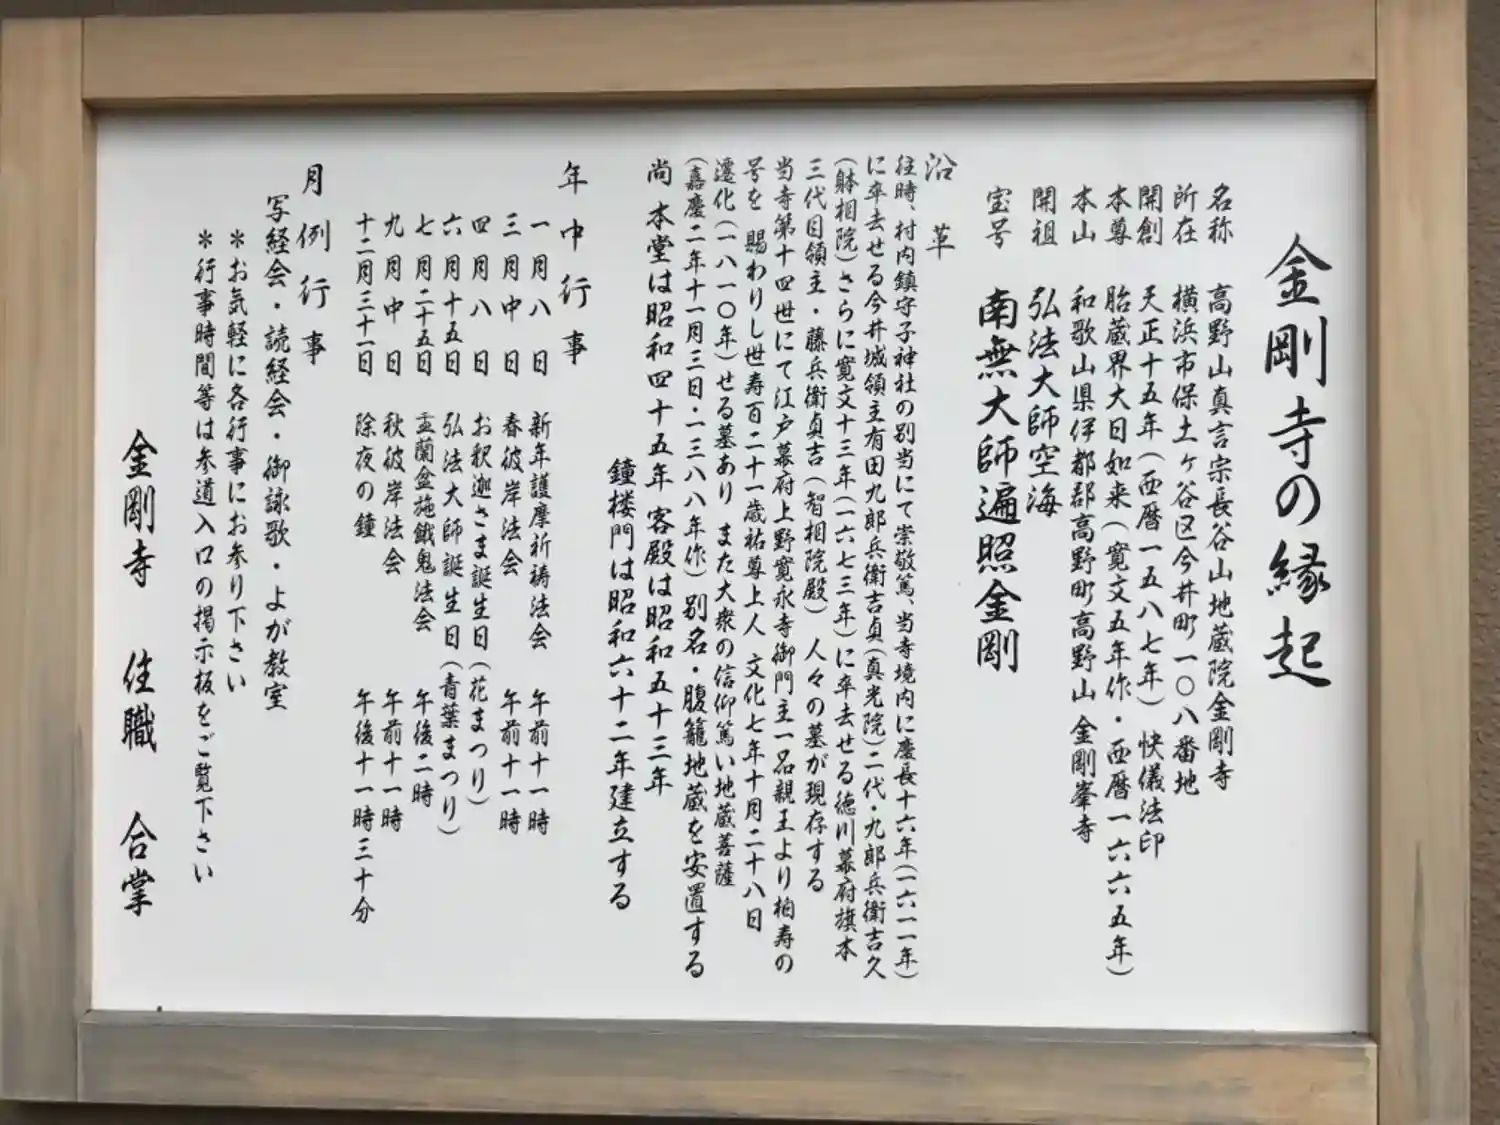 金剛寺の縁起
名称 高野山真言宗長谷山地蔵院金剛寺
所在 横浜市保土ヶ谷区今井町一〇八番地
開創 天正十五年(西暦一五八七年)快儀法印
本尊 胎蔵界大日如来(寛文五年作・西暦一六六五年)
本山 和歌山県伊都郡高野町高野山 金剛峯寺
開祖 弘法大師空海
宝号 南無大師遍照金剛
沿革
往時、村内鎮守子神社の別当にて崇敬篤、当寺境内に慶長十六年(一六一一年)
に卒去せる今井城領主有田九郎兵衛吉貞(真光院)二代・九郎兵衛吉久
(躰相院)さらに寛文十三年(一六七三年)に卒去せる徳川幕府旗本
三代目領主・藤兵衛貞吉(智相院殿) 人々の墓が現存する
当寺第十四世にて江戸幕府上野寛永寺御門主一品親王より柏寿の
号を 賜わりし世寿百二十一歳祐尊上人 文化七年十月二十八日
遷化(一八一〇年)せる墓あり また大衆の信仰篤い地蔵菩薩
(嘉慶二年十一月三日・一三八八年作)別名・腹籠地蔵を安置する
尚 本堂は昭和四十五年 客殿は昭和五十三年
鐘楼門は昭和六十二年建立する
年中行事
一月八日 新年護摩祈祷法会 午前十一時
三月中日 春彼岸法会 午前十一時
四月八日 お釈迦さま誕生日(花まつり)
六月十五日 弘法大師誕生日(青葉まつり)
七月二十五日 盂蘭盆施餓鬼法会 午後二時
九月中日 秋彼岸法会 午前十一時
十二月三十一日 除夜の鐘 午後十一時三十分
月例行事
写経会・読経会・御詠歌・よが教室
＊お気軽に各行事にお参り下さい
＊行事時間等は参道入口の掲示板をご覧下さい
金剛寺 住職 合掌